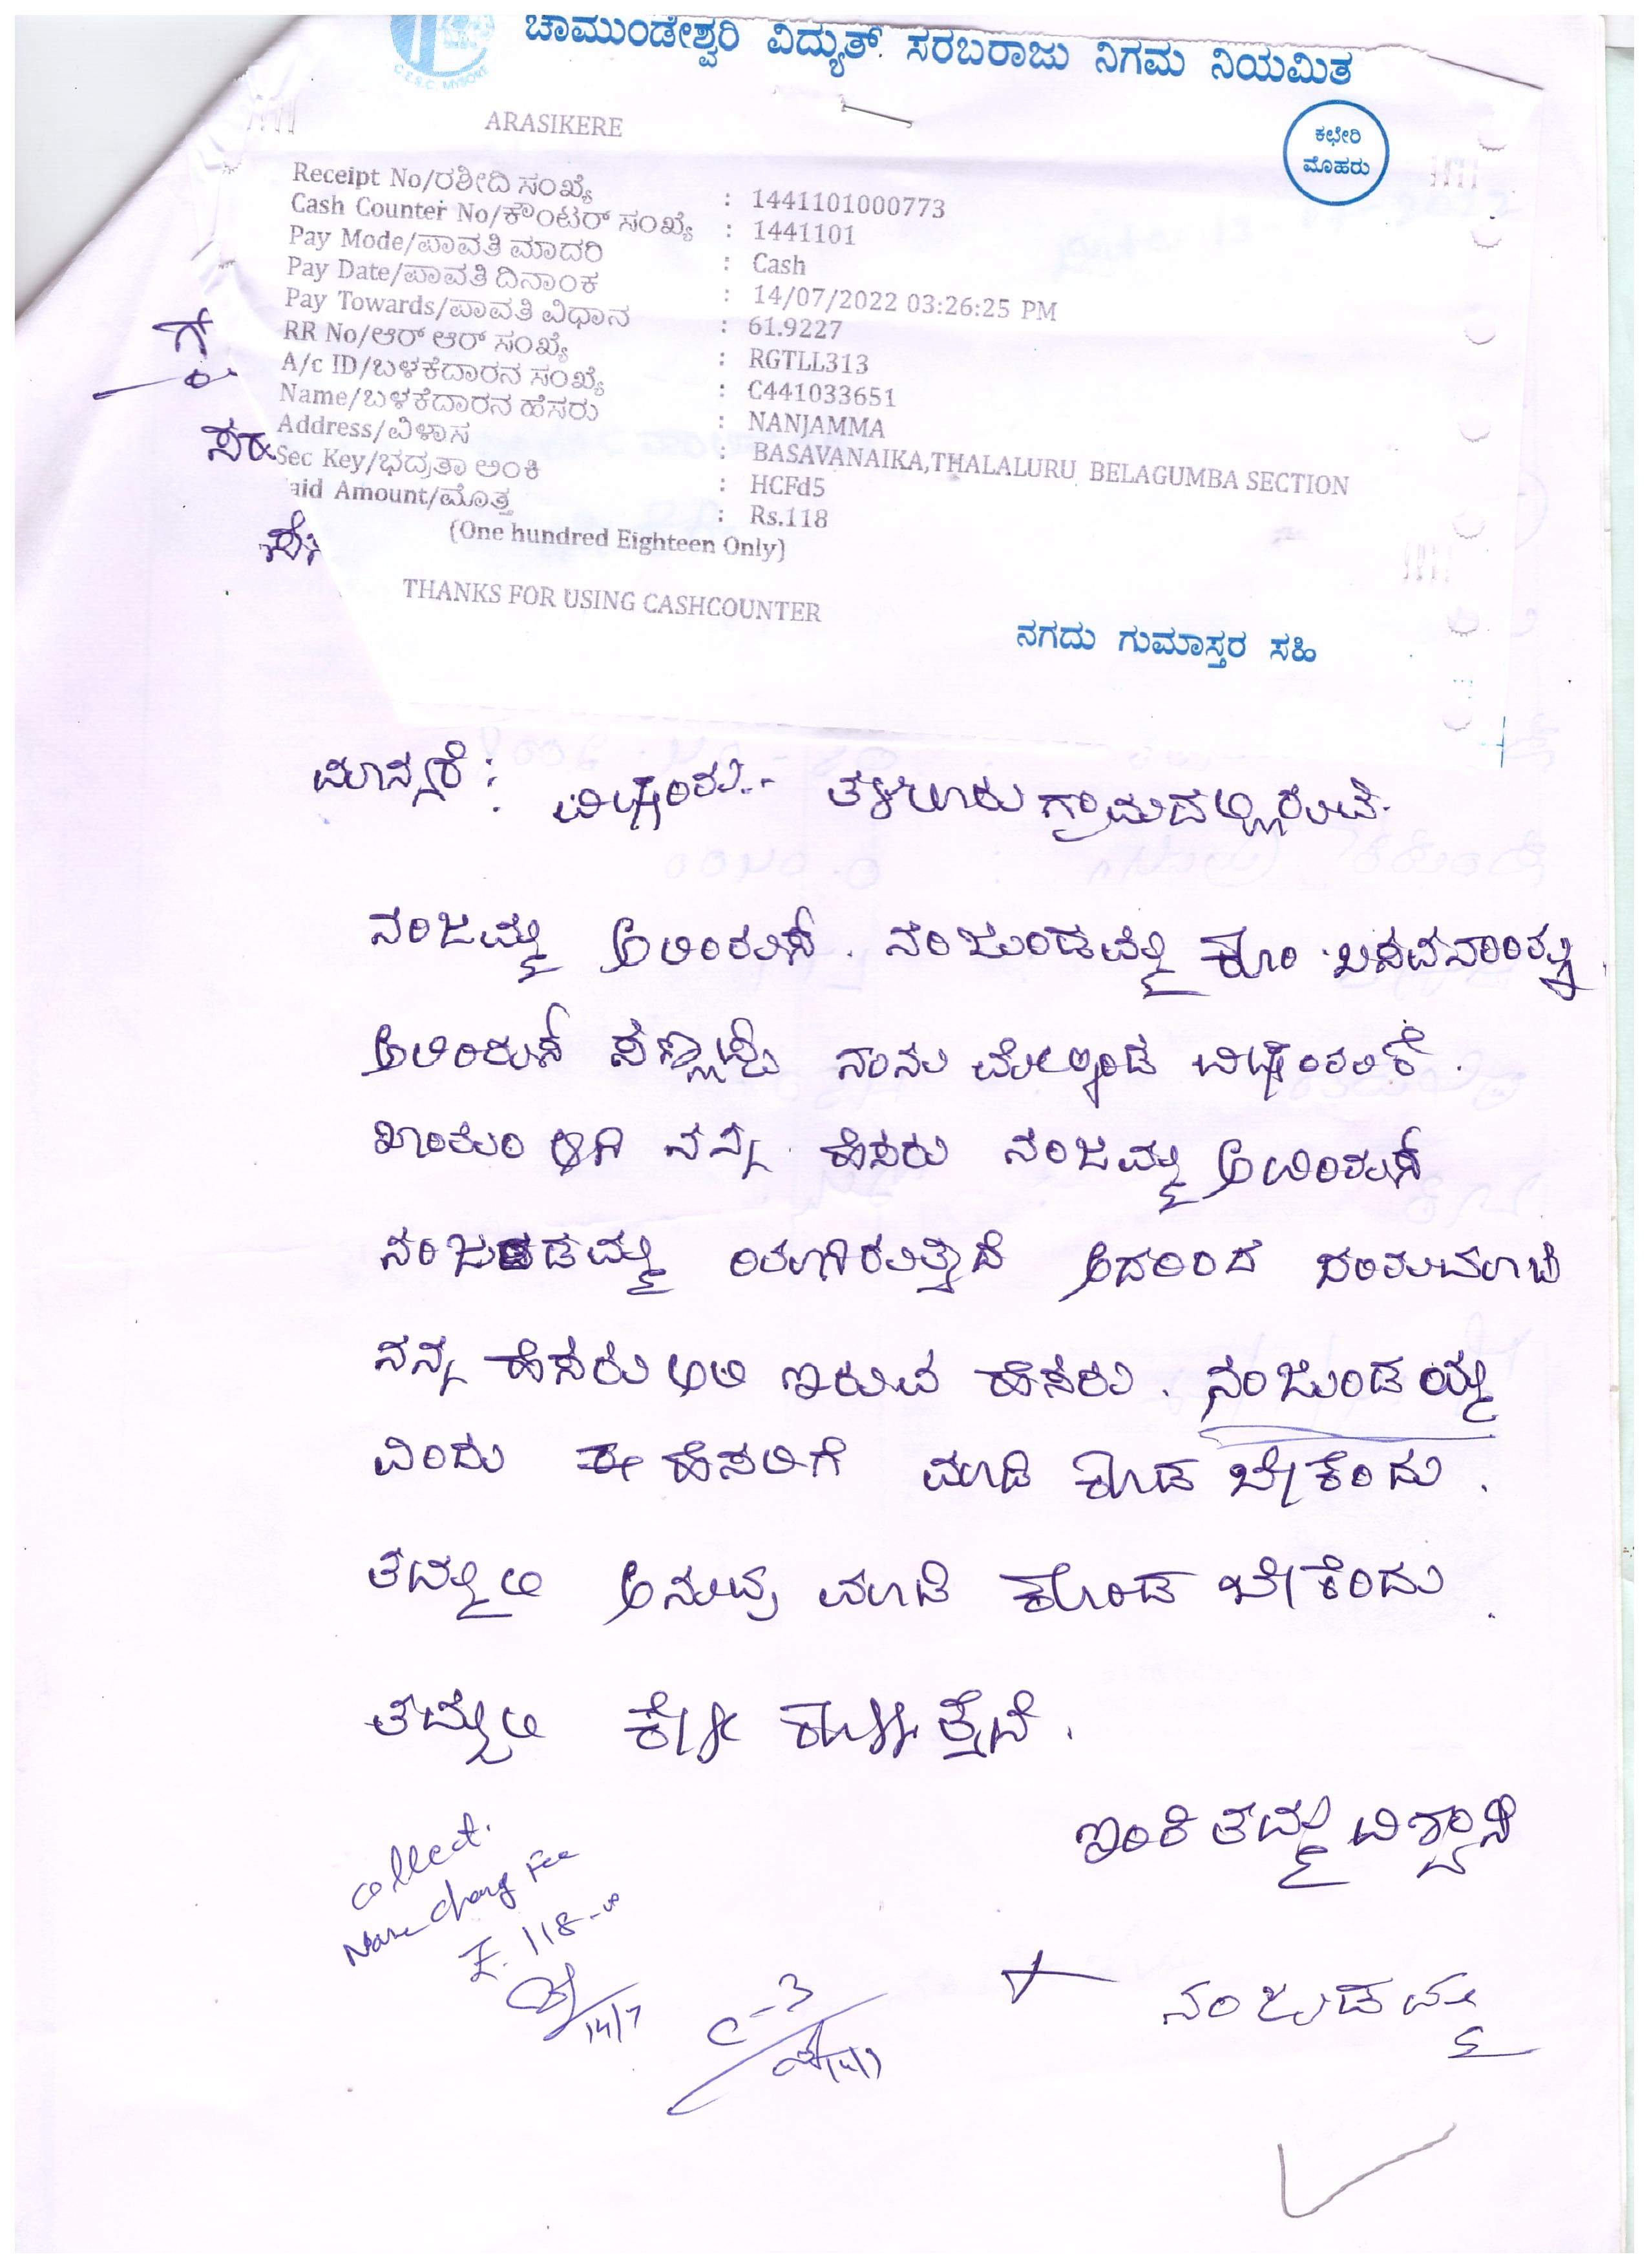 ಚಾಮುಂಡೇಶ್ವರಿ ವಿದ್ಯುತ್ ಸರಬರಾಜು ನಿಗಮ ನಿಯಮಿತ
C.E.S.C. MYSORE
ARASIKERE
ಕಛೇರಿ
ಮೊಹರು
Receipt No/ರಶೀದಿ ಸಂಖ್ಯೆ : 1441101000773
Cash Counter No/ಕೌಂಟರ್ ಸಂಖ್ಯೆ : 1441101
Pay Mode/ಪಾವತಿ ಮಾದರಿ : Cash
Pay Date/ಪಾವತಿ ದಿನಾಂಕ : 14/07/2022 03:26:25 PM
Pay Towards/ಪಾವತಿ ವಿಧಾನ : 61.9227
RR No/ಆರ್ ಆರ್ ಸಂಖ್ಯೆ : RGTLL313
A/c ID/ಬಳಕೆದಾರನ ಸಂಖ್ಯೆ : C441033651
Name/ಬಳಕೆದಾರನ ಹೆಸರು : NANJAMMA
Address/ವಿಳಾಸ : BASAVANAIKA,THALALURU BELAGUMBA SECTION
Sec Key/ಭದ್ರತಾ ಅಂಕಿ : HCFd5
aid Amount/ಮೊತ್ತ : Rs.118
(One hundred Eighteen Only)
THANKS FOR USING CASHCOUNTER
ನಗದು ಗುಮಾಸ್ತರ ಸಹಿ
ಮಾನ್ಯರೆ : ವಿಷಯ:- ತಳಲೂರು ಗ್ರಾಮದಲ್ಲಿರುವ
ನಂಜಮ್ಮ ಅಲಿಯಾಸ್ ನಂಜುಂಡಮ್ಮ ಕೋಂ ಬಸವನಾಯ್ಕ
ಅಲಿಯಾಸ್ ನಾನು ಮೇಲ್ಕಂಡ
ಖಾಯಂ ಆಗಿ ನನ್ನ ಹೆಸರು ನಂಜಮ್ಮ ಅಲಿಯಾಸ್
ನಂಜುಂಡಮ್ಮ ಆದರಿಂದ ದಯಮಾಡಿ
ನನ್ನ ಹೆಸರು ಇರುವ ಹೆಸರು . ನಂಜುಂಡಮ್ಮ
ಎಂದು ಈ ಹೆಸರಿಗೆ ಮಾಡಿ ಕೊಡ ಬೇಕೆಂದು .
ತಮ್ಮಲಿ ಮಾಡಿ ಕೊಡ ಬೇಕೆಂದು .
ತಮ್ಮಲಿ ಕೇಳಿ ಕೊಳ್ಳುತ್ತೇನೆ .
ಇಂತಿ ತಮ್ಮ ವಿಶ್ವಾಸಿ
collect.
Name Chang Fee
118
14/7
C-3
ನಂಜುಡಮ್ಮ